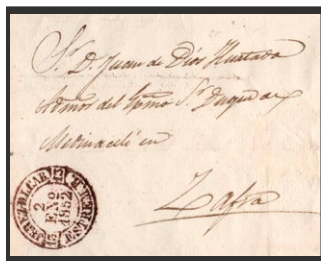 Sr. D. Juan de Dios Hurtado
Admor del Exmo Sr. Duque de
Medinaceli en
Zafra
JEREZ D.L. CAB.
2
ENO
1852
ESTREM